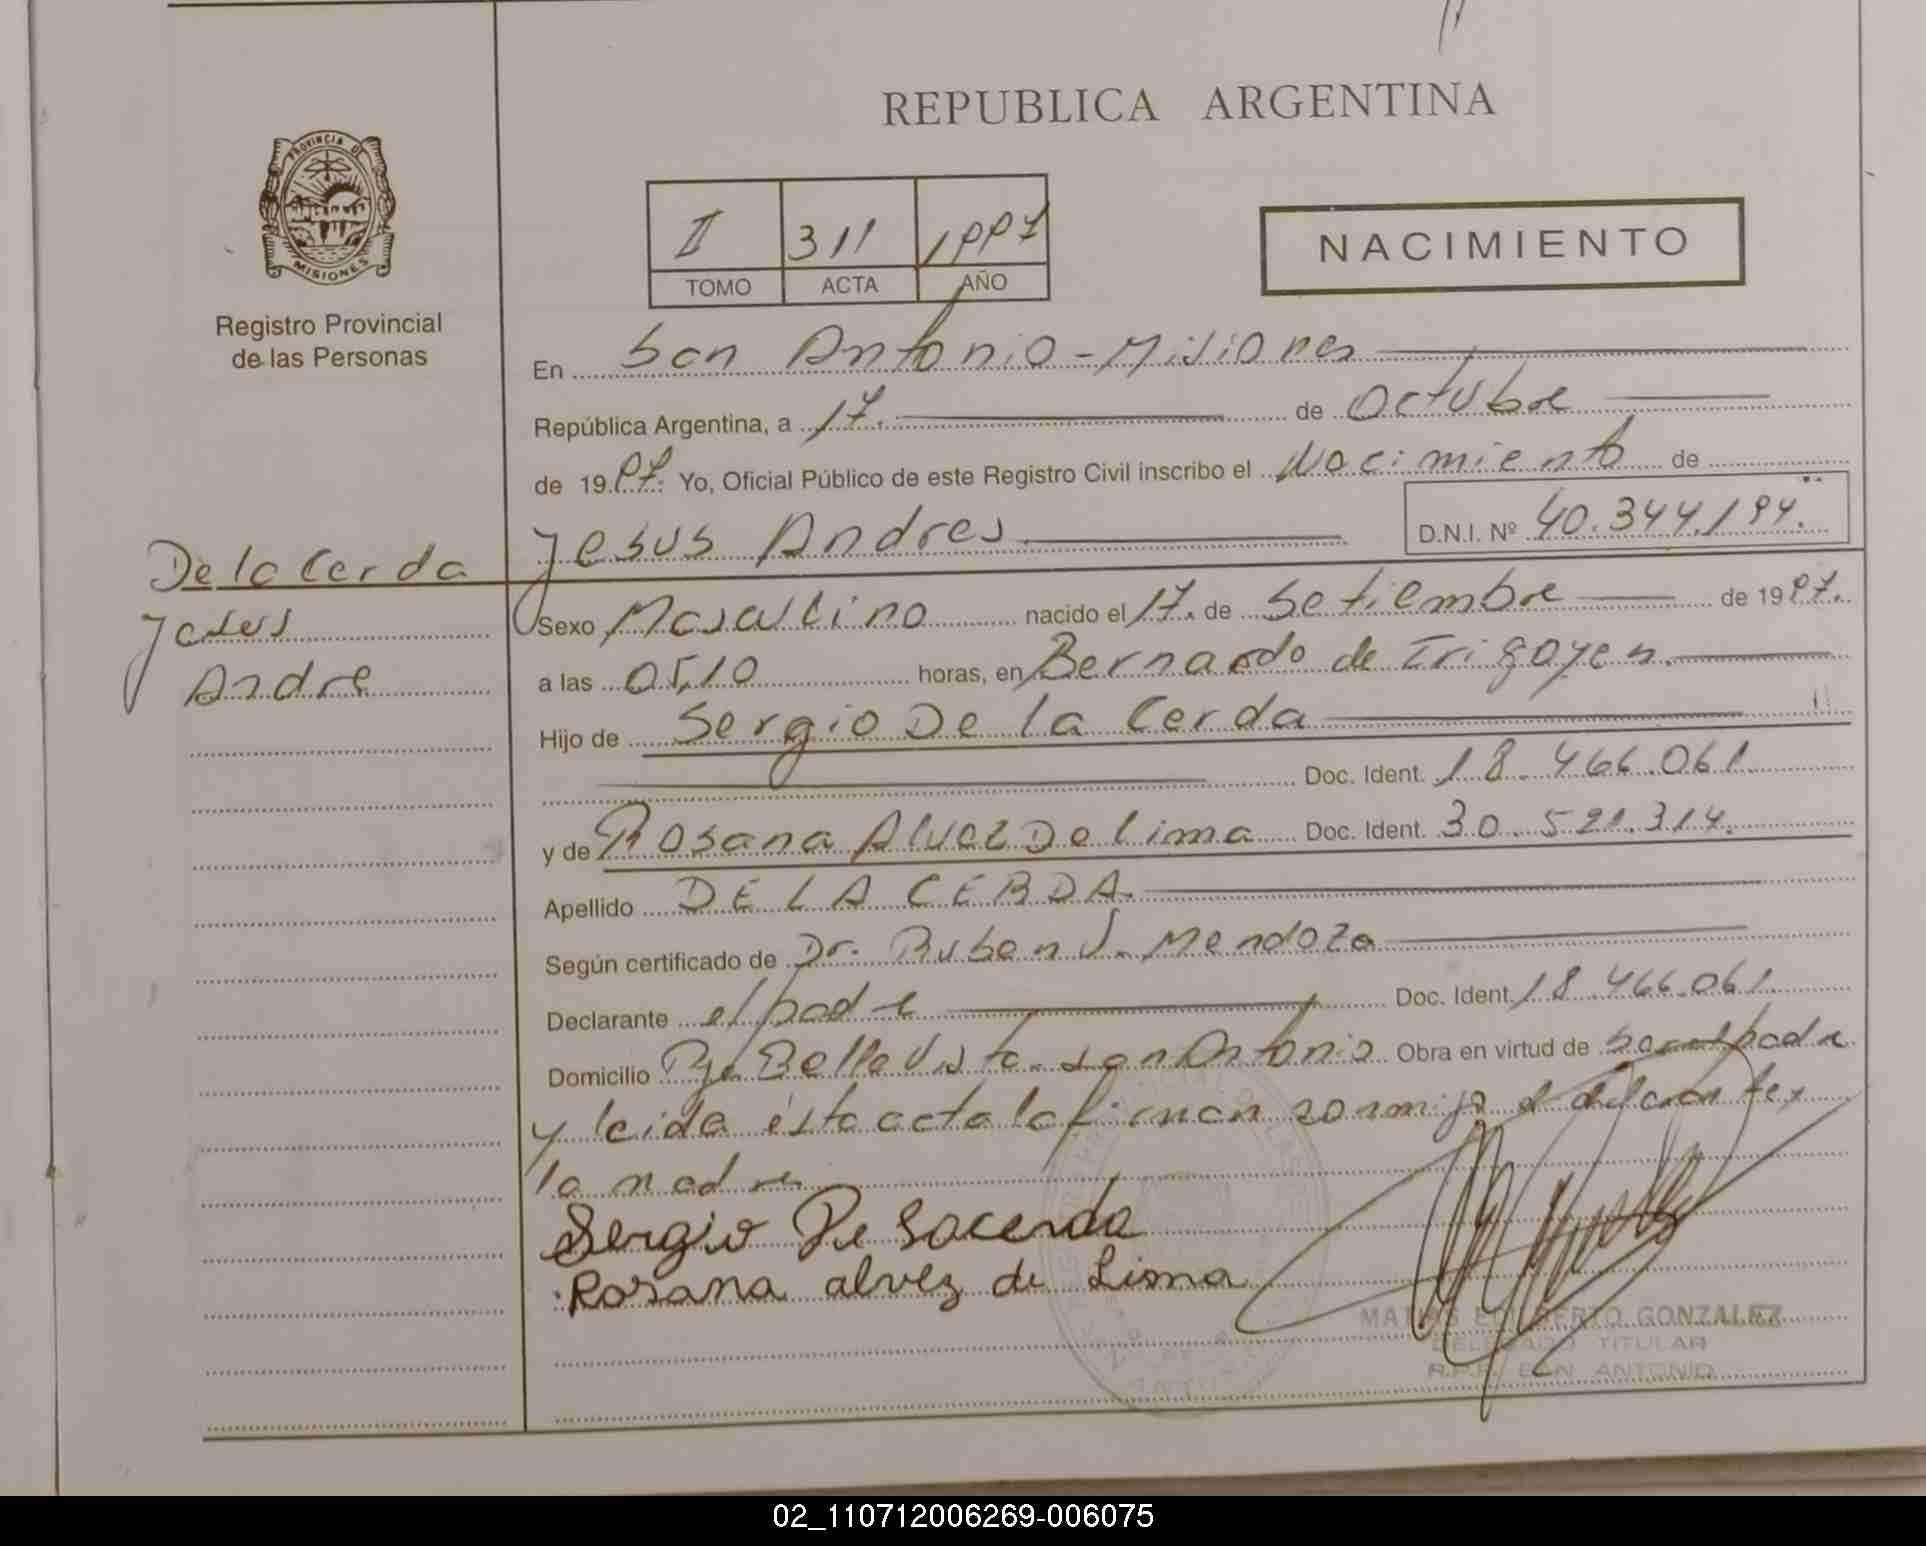 REPUBLICA ARGENTINA
PROVINCIA DE
MISIONES
Registro Provincial
de las Personas
II 311 1997
TOMO ACTA AÑO
NACIMIENTO
En San Antonio - Misiones
República Argentina, a 17. de Octubre
de 1997. Yo, Oficial Público de este Registro Civil inscribo el Nacimiento de
Jesus Andres D.N.I. Nº 40.344.194.
De la Cerda
Jesus
Andre
Sexo Masculino nacido el 17. de Setiembre de 1997.
a las 05,10 horas, en Bernardo de Irigoyen.
Hijo de Sergio De la Cerda
Doc. Ident. 18.466.061.
y de Rosana Alvez De lima Doc. Ident. 30.521.314.
Apellido DE LA CERDA.
Según certificado de Dr. Ruben J. Mendoza
Declarante el padre Doc. Ident. 18.466.061.
Domicilio Bella Vista. San Antonio Obra en virtud de padre
y leida ésta acta la firman conmigo el declarante y
la madre
Sergio De Lacerda
Rosana alvez de Lima
MATIAS EDILBERTO GONZALEZ
DELEGADO TITULAR
R.P.P. SAN ANTONIO
02_110712006269-006075